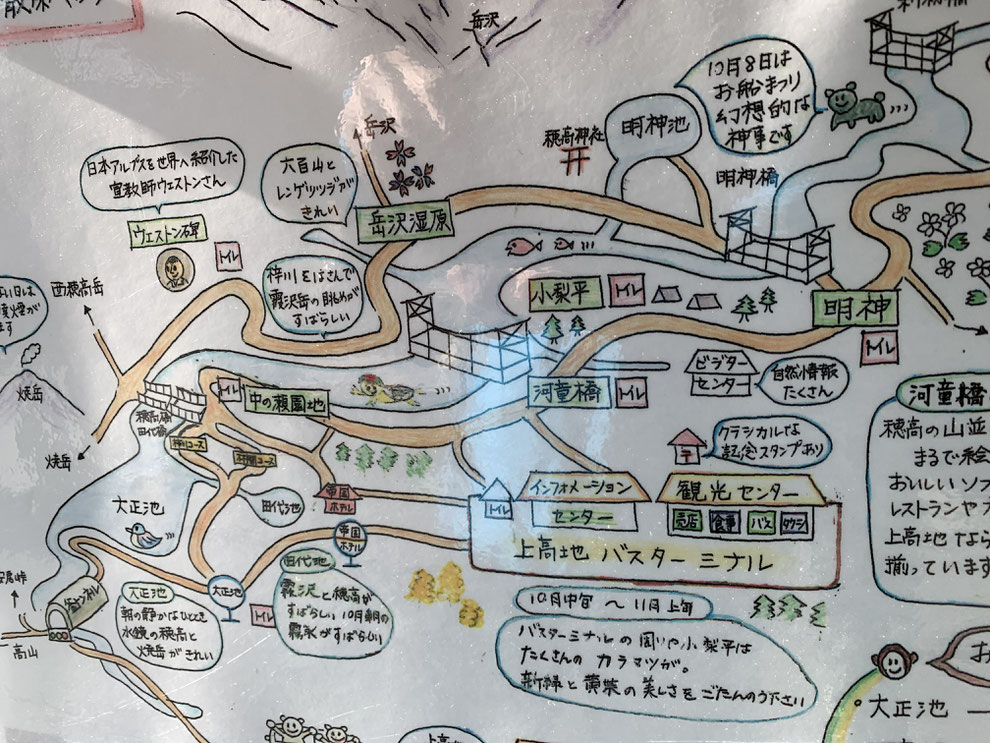 岳沢
岳沢
10月8日は
お船まつり
幻想的な
神事です
明神池
穂高神社
明神橋
日本アルプスを世界へ紹介した
宣教師ウェストンさん
六百山と
レンゲツツジが
きれい
岳沢湿原
ウェストン碑
トイレ
西穂高岳
梓川をはさんで
霞沢岳の眺めが
すばらしい
小梨平
トイレ
明神
トイレ
焼岳
焼岳
穂高橋
田代橋
トイレ
中の瀬園地
河童橋
トイレ
ビジター
センター
自然情報
たくさん
梓川コース
林間コース
クラシカルな
記念スタンプあり
河童橋
穂高の山並
まるで絵
おいしいソフ
レストランや
上高地なら
揃っています
大正池
田代池
帝国
ホテル
帝国
ホテル
トイレ
インフォメーション
センター
観光センター
売店
食事
バス
タクシー
上高地 バスターミナル
釜トンネル
高山
大正池
朝の静かなひととき
水鏡の穂高と
焼岳がきれい
大正池
トイレ
田代池
霞沢と穂高が
すばらしい 10月朝の
霧氷がすばらしい
10月中旬 ~ 11月上旬
バスターミナルの周りや小梨平は
たくさんの カラマツが。
新緑と黄葉の美しさをごたんのう下さい
大正池